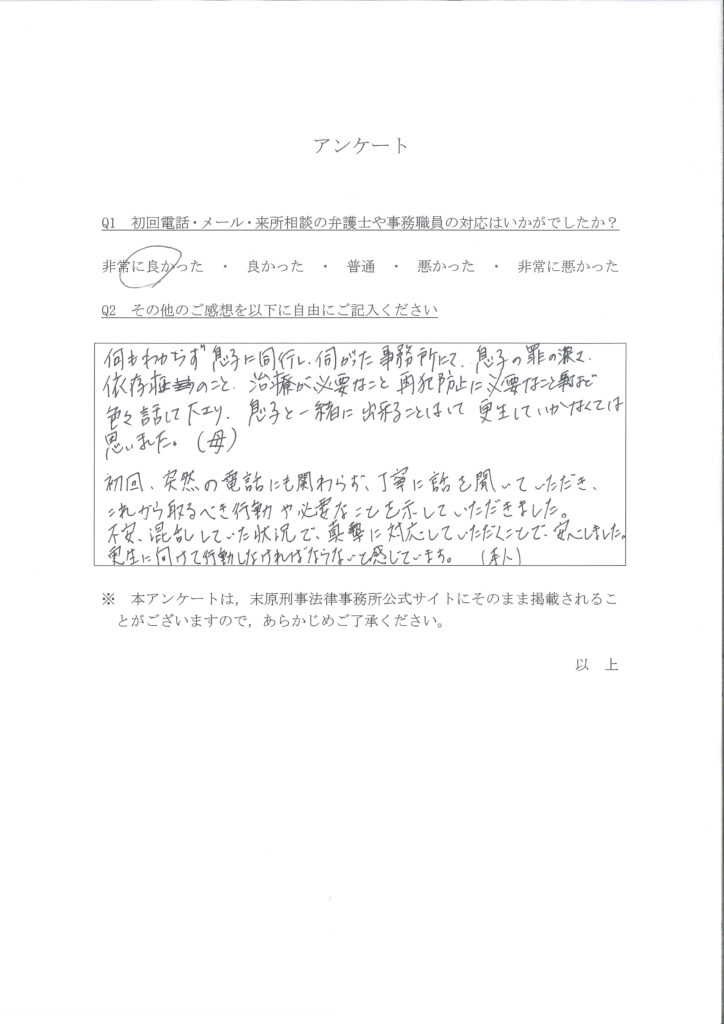 アンケート
Q1 初回電話・メール・来所相談の弁護士や事務職員の対応はいかがでしたか？
非常に良かった ・ 良かった ・ 普通 ・ 悪かった ・ 非常に悪かった
Q2 その他のご感想を以下に自由にご記入ください
何もわからず息子に同行し、伺がた事務所にて、息子の罪の深さ、
依存症のこと、治療が必要なこと 再犯防止に必要なこと など
色々話して下エリ、息子と一緒に出来ることはして 更生していかなくては
思いました。（母）
初回、突然の電話にも関わらず、丁寧に話を聞いていただき、
これから取るべき行動や必要なことを示していただきました。
不安、混乱していた状況で、真摯に対応していただくことで、安心しました。
更生に向けて行動しなければならないと感じています。
※ 本アンケートは，末原刑事法律事務所公式サイトにそのまま掲載されるこ
とがございますので，あらかじめご了承ください。
以 上